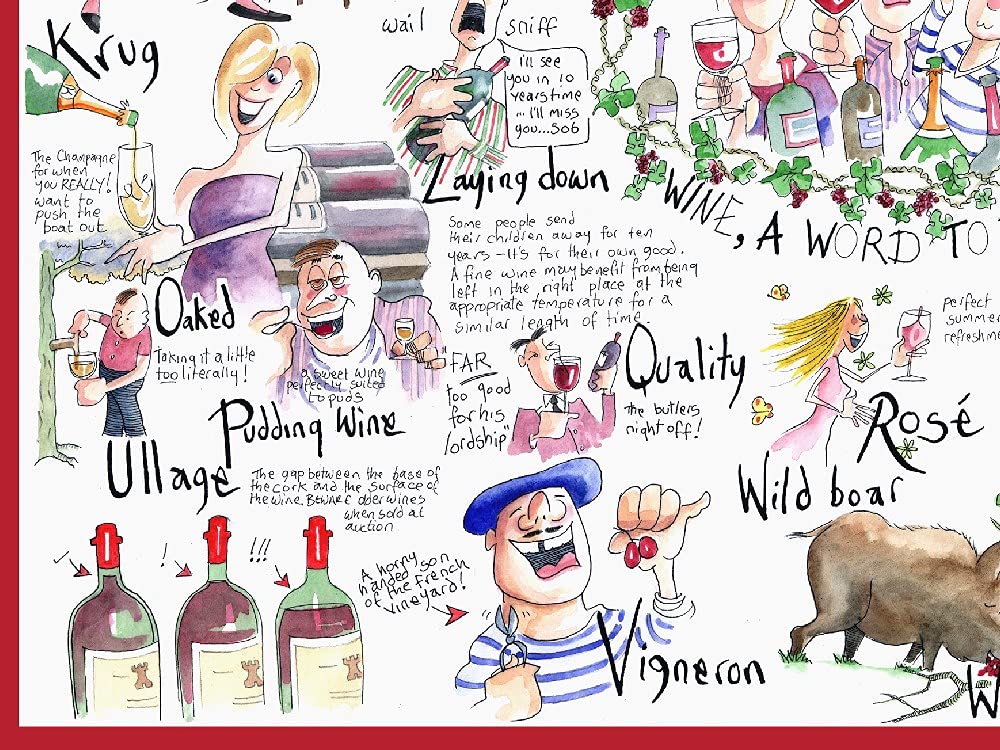 Krug
wail
sniff
I'll see
you in 10
years time
... I'll miss
you...sob
The Champagne
for when
you REALLY!
want to
push the
boat out
Laying down
Some people send
their children away for ten
years - it's for their own good.
A fine wine may benefit from being
left in the right place at the
appropriate temperature for a
similar length of time.
WINE, A WORD TO
Oaked
Taking it a little
too literally!
a sweet wine
perfectly suited
to puds
Pudding Wine
"FAR
too good
for his
lordship"
Quality
The butlers
night off!
perfect
summer
refreshm
Rosé
Ullage
The gap between the base of
the cork and the surface of
the wine. Beware older wines
when sold at
auction
!
!!!
A horny
handed son
of the French
vineyard!
Vigneron
Wild boar
W